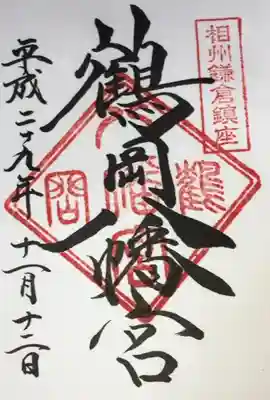 相州鎌倉鎮座
鶴岡八幡宮
平成二十九年十一月十二日